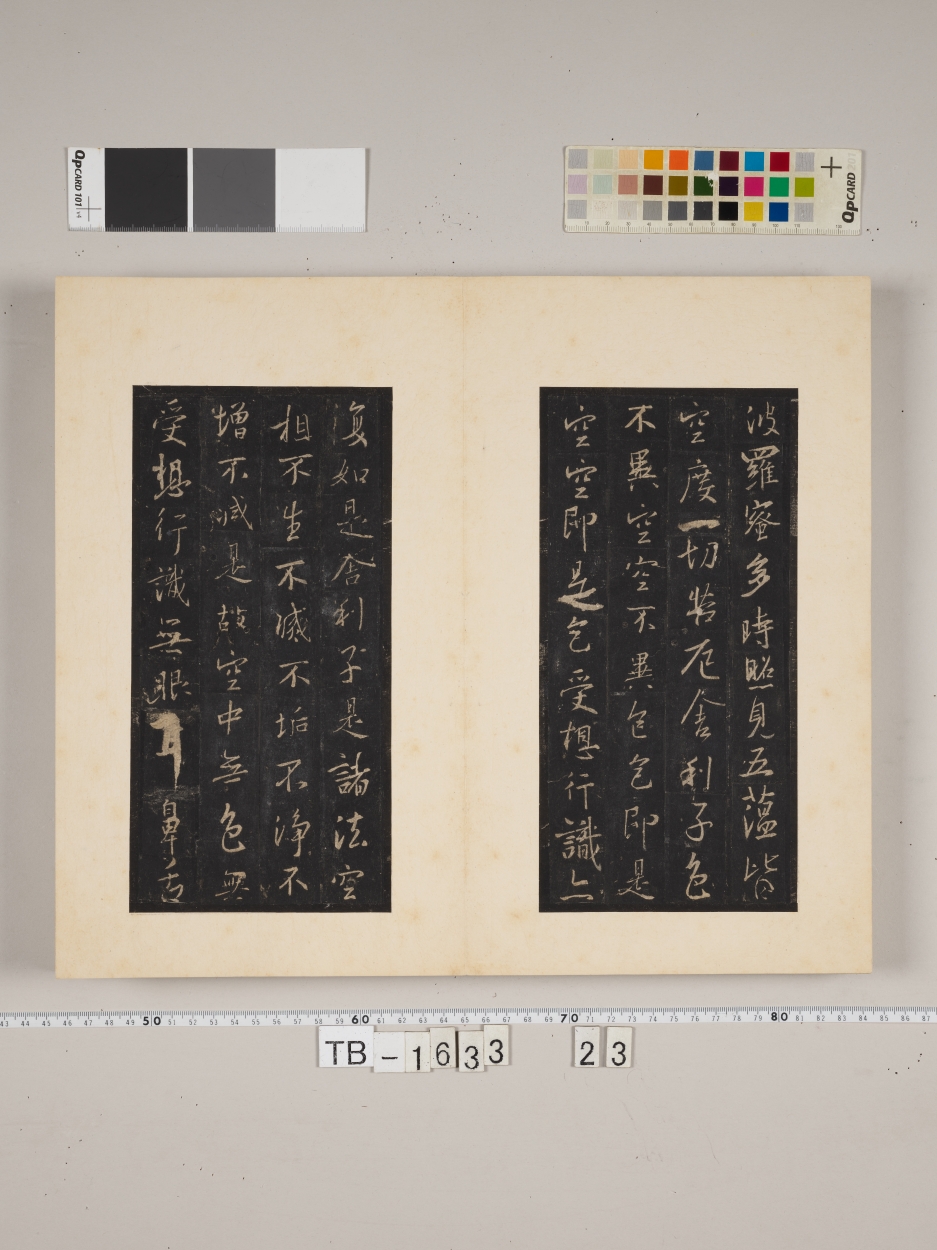 波羅蜜多時照見五蘊皆
空度一切苦厄舍利子色
不異空空不異色色即是
空空即是色受想行識亦
復如是舍利子是諸法空
相不生不滅不垢不淨不
增不減是故空中無色無
受想行識無眼耳鼻舌
QPCARD 101 v4
QPCARD 201
43 44 45 46 47 48 49 50 51 52 53 54 55 56 57 58 59 60 61 62 63 64 65 66 67 68 69 70 71 72 73 74 75 76 77 78 79 80 81 82 83 84 85 86 87
TB-1633 23